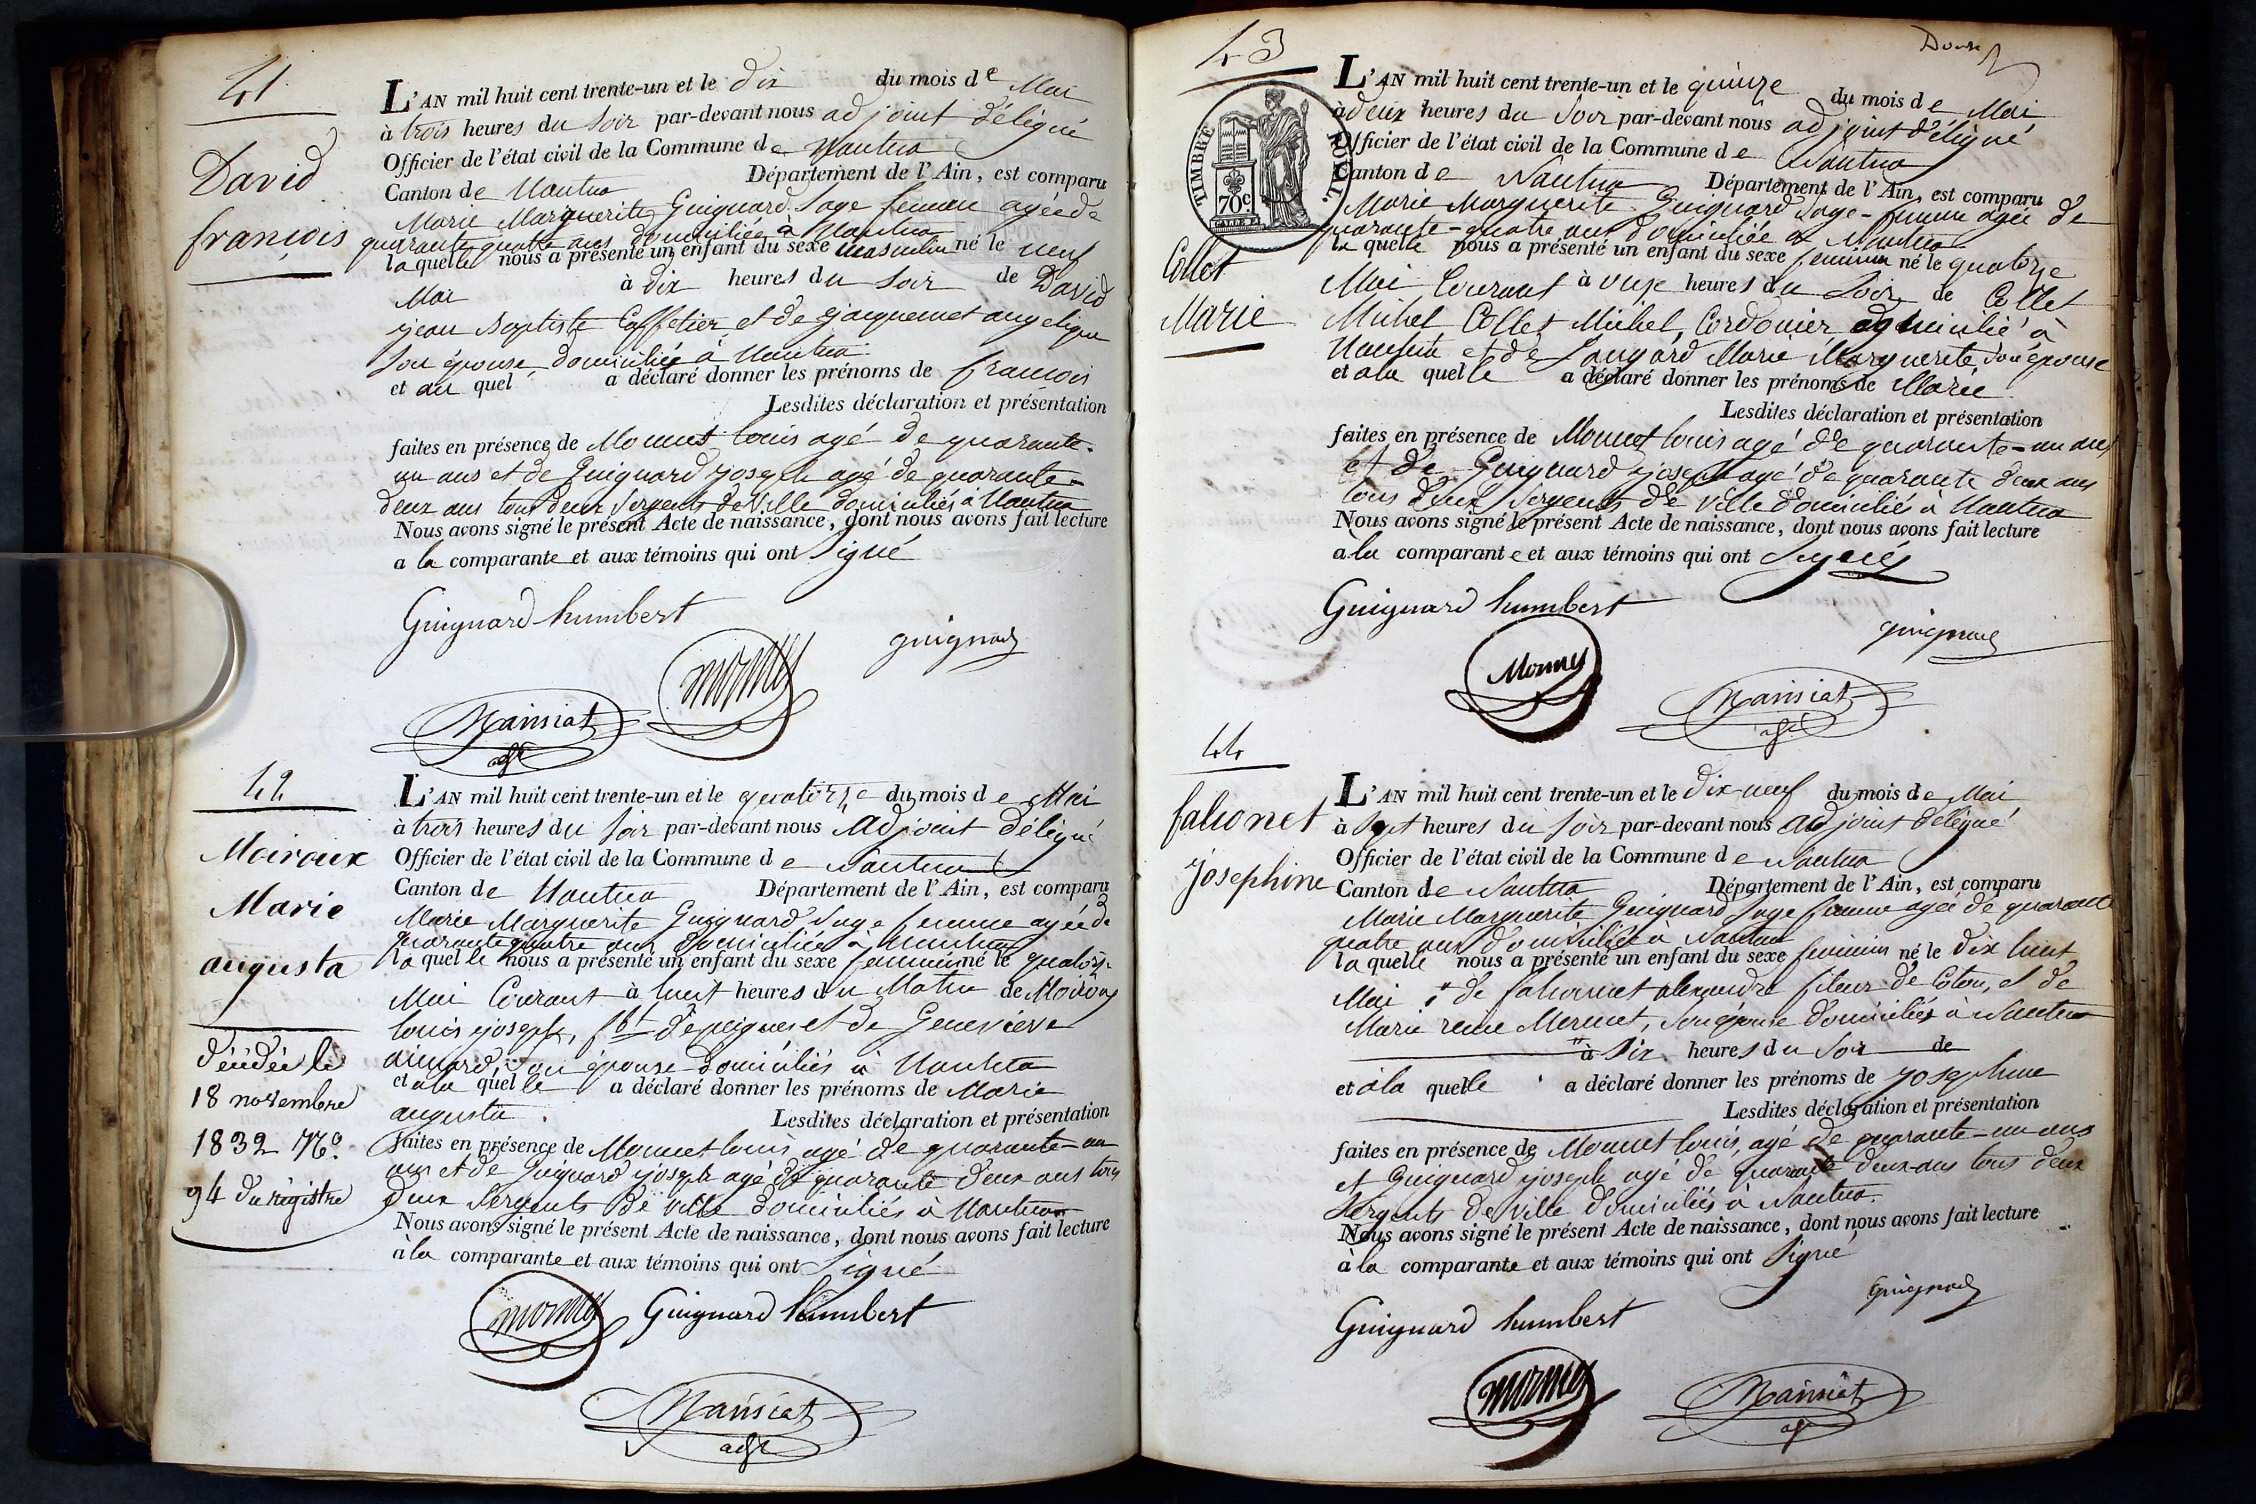 41
David
françois
L'AN mil huit cent trente-un et le dix du mois de Mai
à trois heures du Soir par-devant nous adjoint délégué
Officier de l'état civil de la Commune de Nantua
Canton de Nantua Département de l'Ain, est comparu
Marie Marguerite Guignard Sage femme agée de
quarante quatre ans domiciliée à Nantua
la quelle nous a présenté un enfant du sexe masculin né le neuf
Mai à dix heures du Soir de David
jean Baptiste Caffetier et de jacquemet angelique
son épouse domiciliés à Nantua
et au quel a déclaré donner les prénoms de françois
Lesdites déclaration et présentation
faites en présence de Monnet louis agé de quarante-
un ans et de Guignard joseph agé de quarante-
deux ans tous deux Sergents de Ville domiciliés à Nantua
Nous avons signé le présent Acte de naissance, dont nous avons fait lecture
a la comparante et aux témoins qui ont Signé
Guignard humbert
guignard
monnet
Mansiat
adjt
42
Moiroux
Marie
augusta
décédée le
18 novembre
1832 No.
94 du régistre
L'AN mil huit cent trente-un et le quatorze du mois de Mai
à trois heures du Soir par-devant nous Adjoint délégué
Officier de l'état civil de la Commune de Nantua
Canton de Nantua Département de l'Ain, est comparu
Marie Marguerite Guignard Sage femme agée de
quarante quatre ans domiciliée à Nantua
la quelle nous a présenté un enfant du sexe feminin né le quatorze
Mai Courant à huit heures du Matin de Moiroux
louis joseph, fbt de peignes et de Geneviève
aimard, son épouse domiciliés à Nantua
et a la quelle a déclaré donner les prénoms de Marie
augusta Lesdites déclaration et présentation
faites en présence de Monnet louis agé de quarante-un
ans et de Guignard joseph agé de quarante deux ans tous
deux Sergents de ville domiciliés à Nantua
Nous avons signé le présent Acte de naissance, dont nous avons fait lecture
à la comparante et aux témoins qui ont Signé
monnet Guignard humbert
Mansiat
adjt
43
TIMBRE ROYAL
70c.
Collet
Marie
L'AN mil huit cent trente-un et le quinze du mois de Mai
à deux heures du Soir par-devant nous adjoint délégué
Officier de l'état civil de la Commune de Nantua
Canton de Nantua Département de l'Ain, est comparu
Marie Marguerite Guignard Sage-femme agée de
quarante-quatre ans domiciliée à Nantua
la quelle nous a présenté un enfant du sexe feminin né le quatorze
Mai Courant à onze heures du Soir de Collet
Michel Collet Michel, Cordonier domicilié à
Nantua et de Marie Marguerite son épouse
et a la quelle a déclaré donner les prénoms de Marie
Lesdites déclaration et présentation
faites en présence de Monnet louis agé de quarante-un ans
et de Guignard joseph agé de quarante deux ans
tous deux Sergents de ville domiciliés à Nantua
Nous avons signé le présent Acte de naissance, dont nous avons fait lecture
a la comparante et aux témoins qui ont Signés
Guignard humbert
guignard
Monnet
Mansiat
adjt
44
falconet
josephine
L'AN mil huit cent trente-un et le dix-neuf du mois de Mai
à Sept heures du Soir par-devant nous adjoint délégué
Officier de l'état civil de la Commune de Nantua
Canton de Nantua Département de l'Ain, est comparu
Marie Marguerite Guignard Sage femme agée de quarante
quatre ans domiciliée à Nantua
la quelle nous a présenté un enfant du sexe feminin né le dix huit
Mai de falconnet alexandre fileur de Coton, et de
Marie reine Mermet, son épouse domiciliés à Nantua
à Six heures du Soir de
et à la quelle a déclaré donner les prénoms de josephine
Lesdites déclaration et présentation
faites en présence de Monnet louis, agé de quarante-un ans
et Guignard joseph agé de quarante deux-ans tous deux
Sergents de ville domiciliés à Nantua.
Nous avons signé le présent Acte de naissance, dont nous avons fait lecture
à la comparante et aux témoins qui ont Signé
Guignard humbert
guignard
monnet
Mansiat
adjt